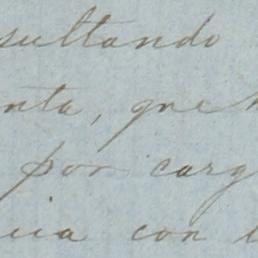 sultando
nta, que
por carg
cia con